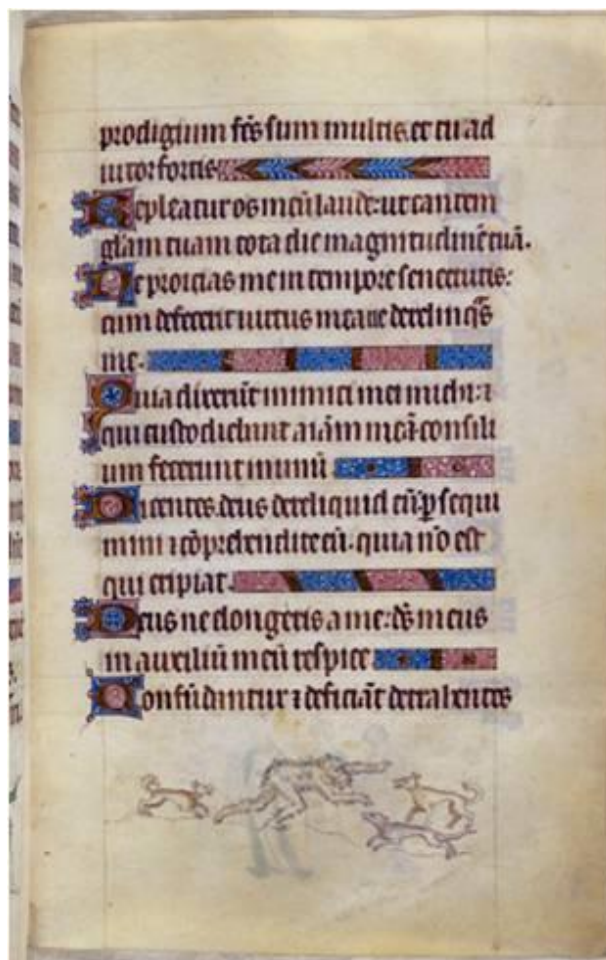 prodigium fc̄s sum multis. et tu ad
iutor fortis
Repleatur os meū laude: ut cantem
gl̄am tuam tota die magnitudinē tuā.
Ne proicias me in tempore senectutis:
cum defecerit uirtus mea ne derelinq̄s
me.
Quia dixerūt inimici mei michi: ⁊
qui custodiebant aīam meā consili
um fecerunt in unū
Dicentes. deus dereliquid eū ꝑsequi
mini ⁊ cōprehendite eū. quia nō est
qui eripiat.
Deus ne elongeris a me: ds̄ meus
in auxiliū meū respice
Confūdantur ⁊ deficiāt detrahentes